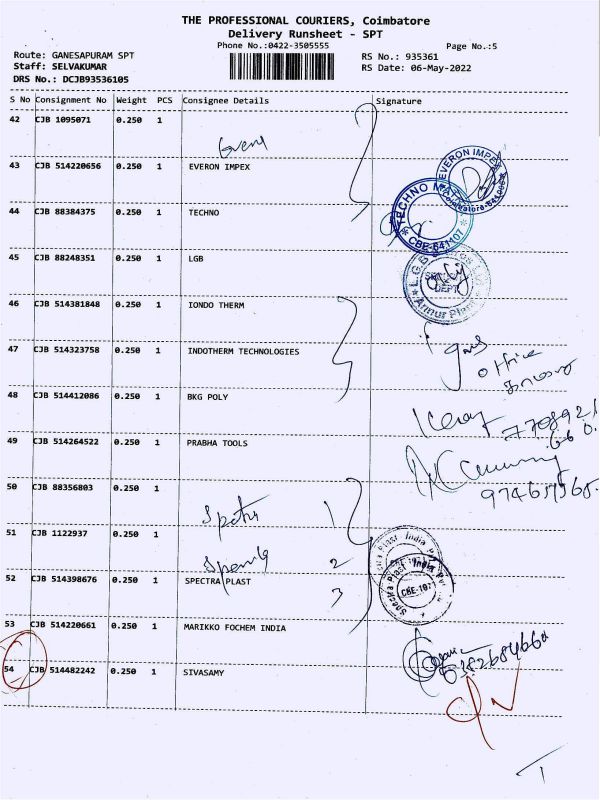 THE PROFESSIONAL COURIERS, Coimbatore
Delivery Runsheet - SPT
Phone No.:0422-3505555
Page No.:5
Route: GANESAPURAM SPT
RS No.: 935361
Staff: SELVAKUMAR
RS Date: 06-May-2022
DRS No.: DCJB93536105
S No Consignment No Weight PCS Consignee Details Signature
42 CJB 1095071 0.250 1
43 CJB 514220656 0.250 1 EVERON IMPEX
EVERON IMPEX
44 CJB 88384375 0.250 1 TECHNO
TECHNO
CBE-641107
45 CJB 88248351 0.250 1 LGB
L.G.B
DEPT
Annur Plant
46 CJB 514381848 0.250 1 IONDO THERM
47 CJB 514323758 0.250 1 INDOTHERM TECHNOLOGIES
office
48 CJB 514412086 0.250 1 BKG POLY
49 CJB 514264522 0.250 1 PRABHA TOOLS
50 CJB 88356803 0.250 1
1
51 CJB 1122937 0.250 1
2
Spectra Plast India
CBE-107
52 CJB 514398676 0.250 1 SPECTRA PLAST
3
53 CJB 514220661 0.250 1 MARIKKO FOCHEM INDIA
54 CJB 514482242 0.250 1 SIVASAMY